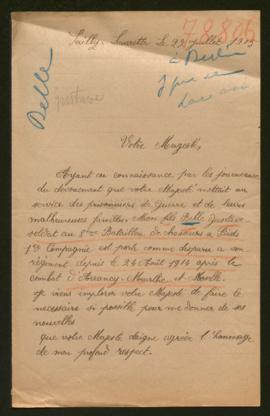 78806
Sailly-Laurette le 29 juillet 1915
à Berlin
Belle
Gustave
Votre Majesté,
Ayant eu connaissance par les journeaux
du dévouement que votre Majesté mettait au
service des prisonniers de Guerre et de leurs
malheureuses familles Mon fils Belle Gustave
soldat au 8me Bataillon de chasseurs à Pieds
1re Compagnie est porté comme disparu à son
régiment depuis le 24 Août 1914 après le
combat d'Arrancy-Meurthe-et-Moselle
Je viens implorer votre Majesté de faire le
necessaire si possible pour me donner de ses
nouvelles
que votre Majesté daigne agréer l'hommage
de mon profond respect.